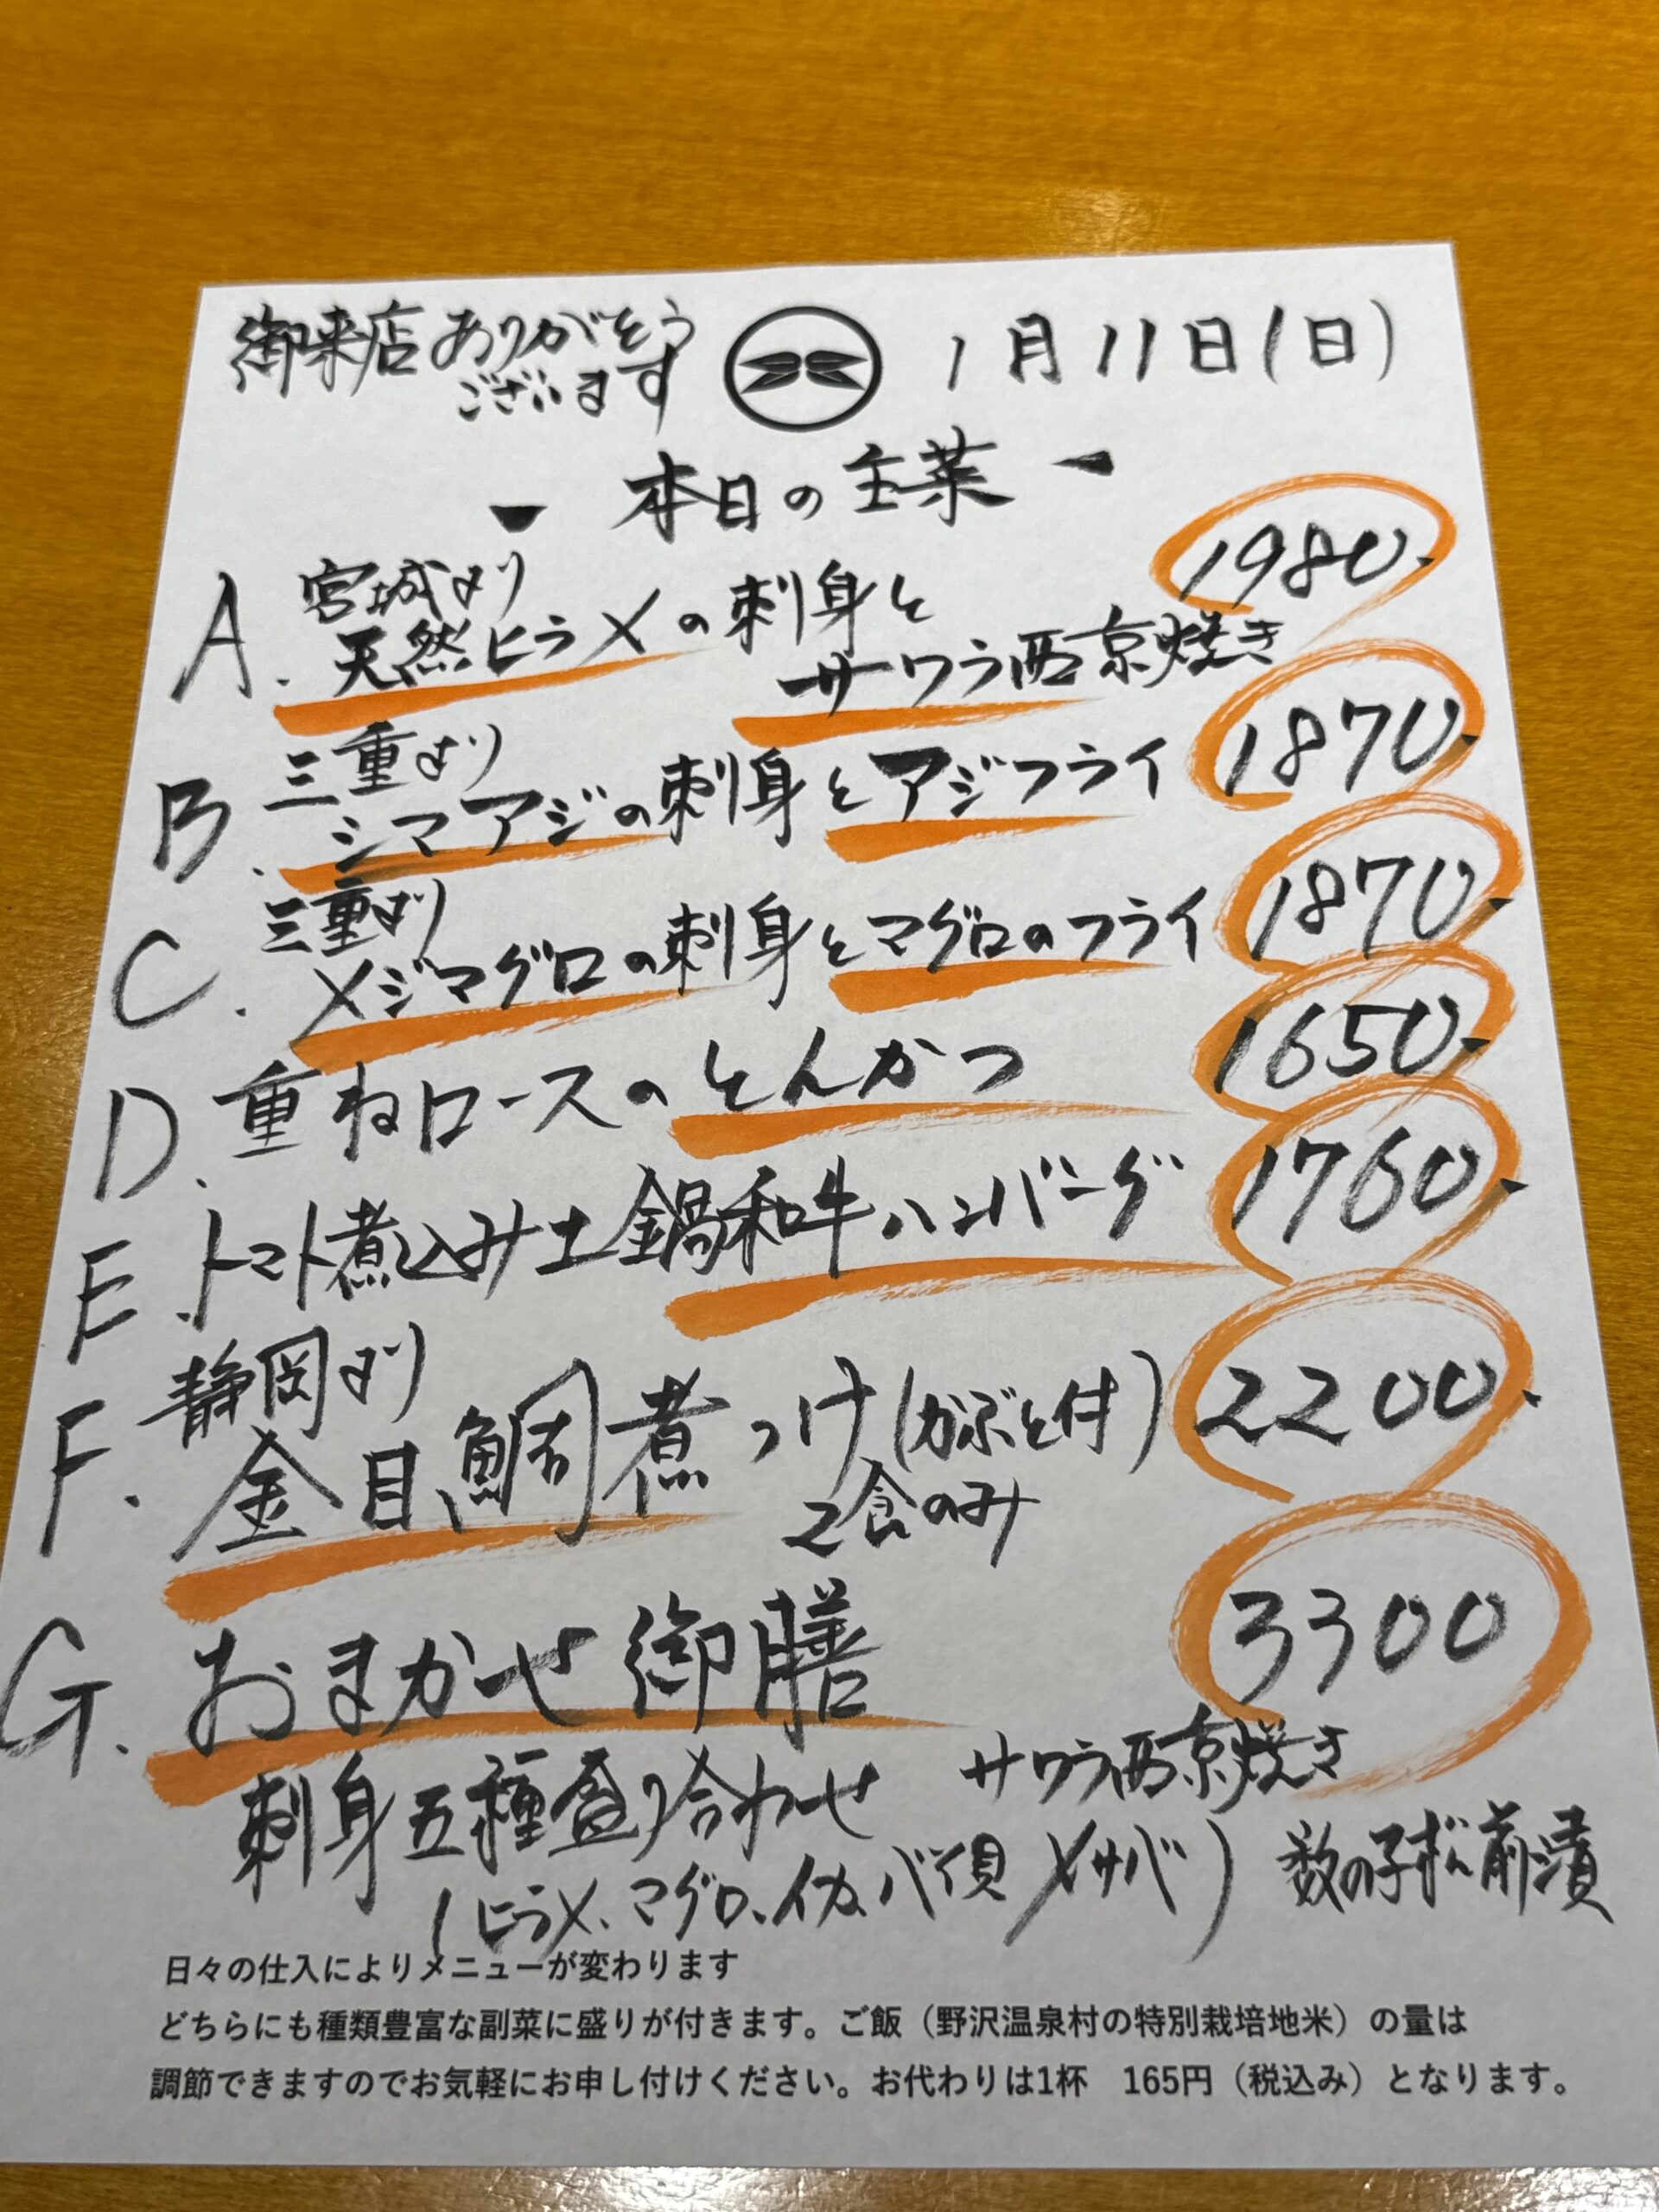 御来店ありがとう
ございます
1月11日(日)
- 本日の主菜 -
A. 宮城より
天然ヒラメの刺身と
サワラ西京焼き
1980.
B. 三重より
シマアジの刺身とアジフライ
1870.
C. 三重より
メジマグロの刺身とマグロのフライ
1870.
D. 重ねロースのとんかつ
1650.
E. トマト煮込み土鍋和牛ハンバーグ
1760.
F. 静岡より
金目鯛煮つけ(かぶと付)
2食のみ
2200.
G. おまかせ御膳
3300
刺身五種盛り合わせ
サワラ西京焼き
(ヒラメ、マグロ、イカ、バイ貝、〆サバ)
数の子松前漬
日々の仕入によりメニューが変わります
どちらにも種類豊富な副菜に盛りが付きます。ご飯（野沢温泉村の特別栽培地米）の量は
調節できますのでお気軽にお申し付けください。お代わりは1杯　165円（税込み）となります。